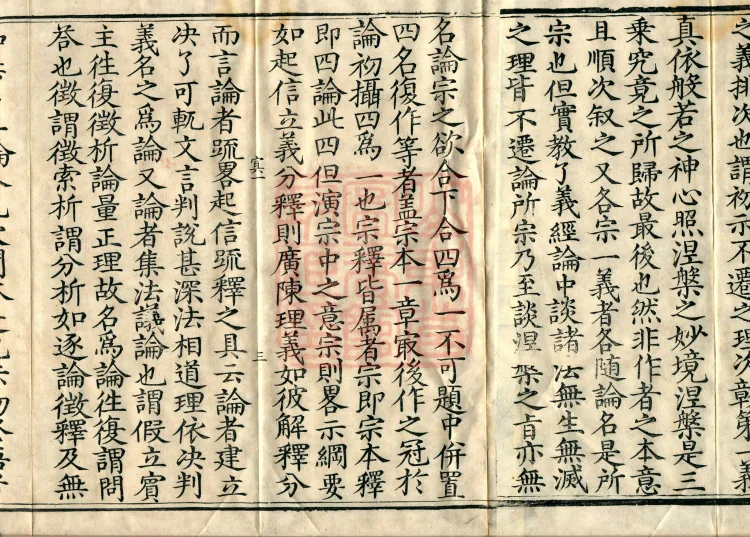 之義排次也謂初示不遷之理次章第一義
真依般若之神心照涅槃之妙境涅槃是三
乘究竟之所歸故最後也然非作者之本意
且順次叙之又各宗一義者各随論名是所
宗也但實教了義經論中談諸法無生無滅
之理皆不遷論所宗乃至談涅槃之旨亦無
名論宗之欲合下合四爲一不可題中併置
四名復作等者盖宗本一章㝡後作之冠於
論初攝四爲一也宗釋皆属者宗即宗本釋
即四論此四但演宗中之意宗則畧示綱要
如起信立義分釋則廣陳理義如彼解釋分
寘一
三
而言論者䟽畧起信䟽釋之具云論者建立
决了可軌文言判說甚深法相道理依决判
義名之爲論又論者集法議論也謂假立賓
主往復徵析論量正理故名爲論往復謂問
荅也徵謂徵索析謂分析如逐論徵釋及無